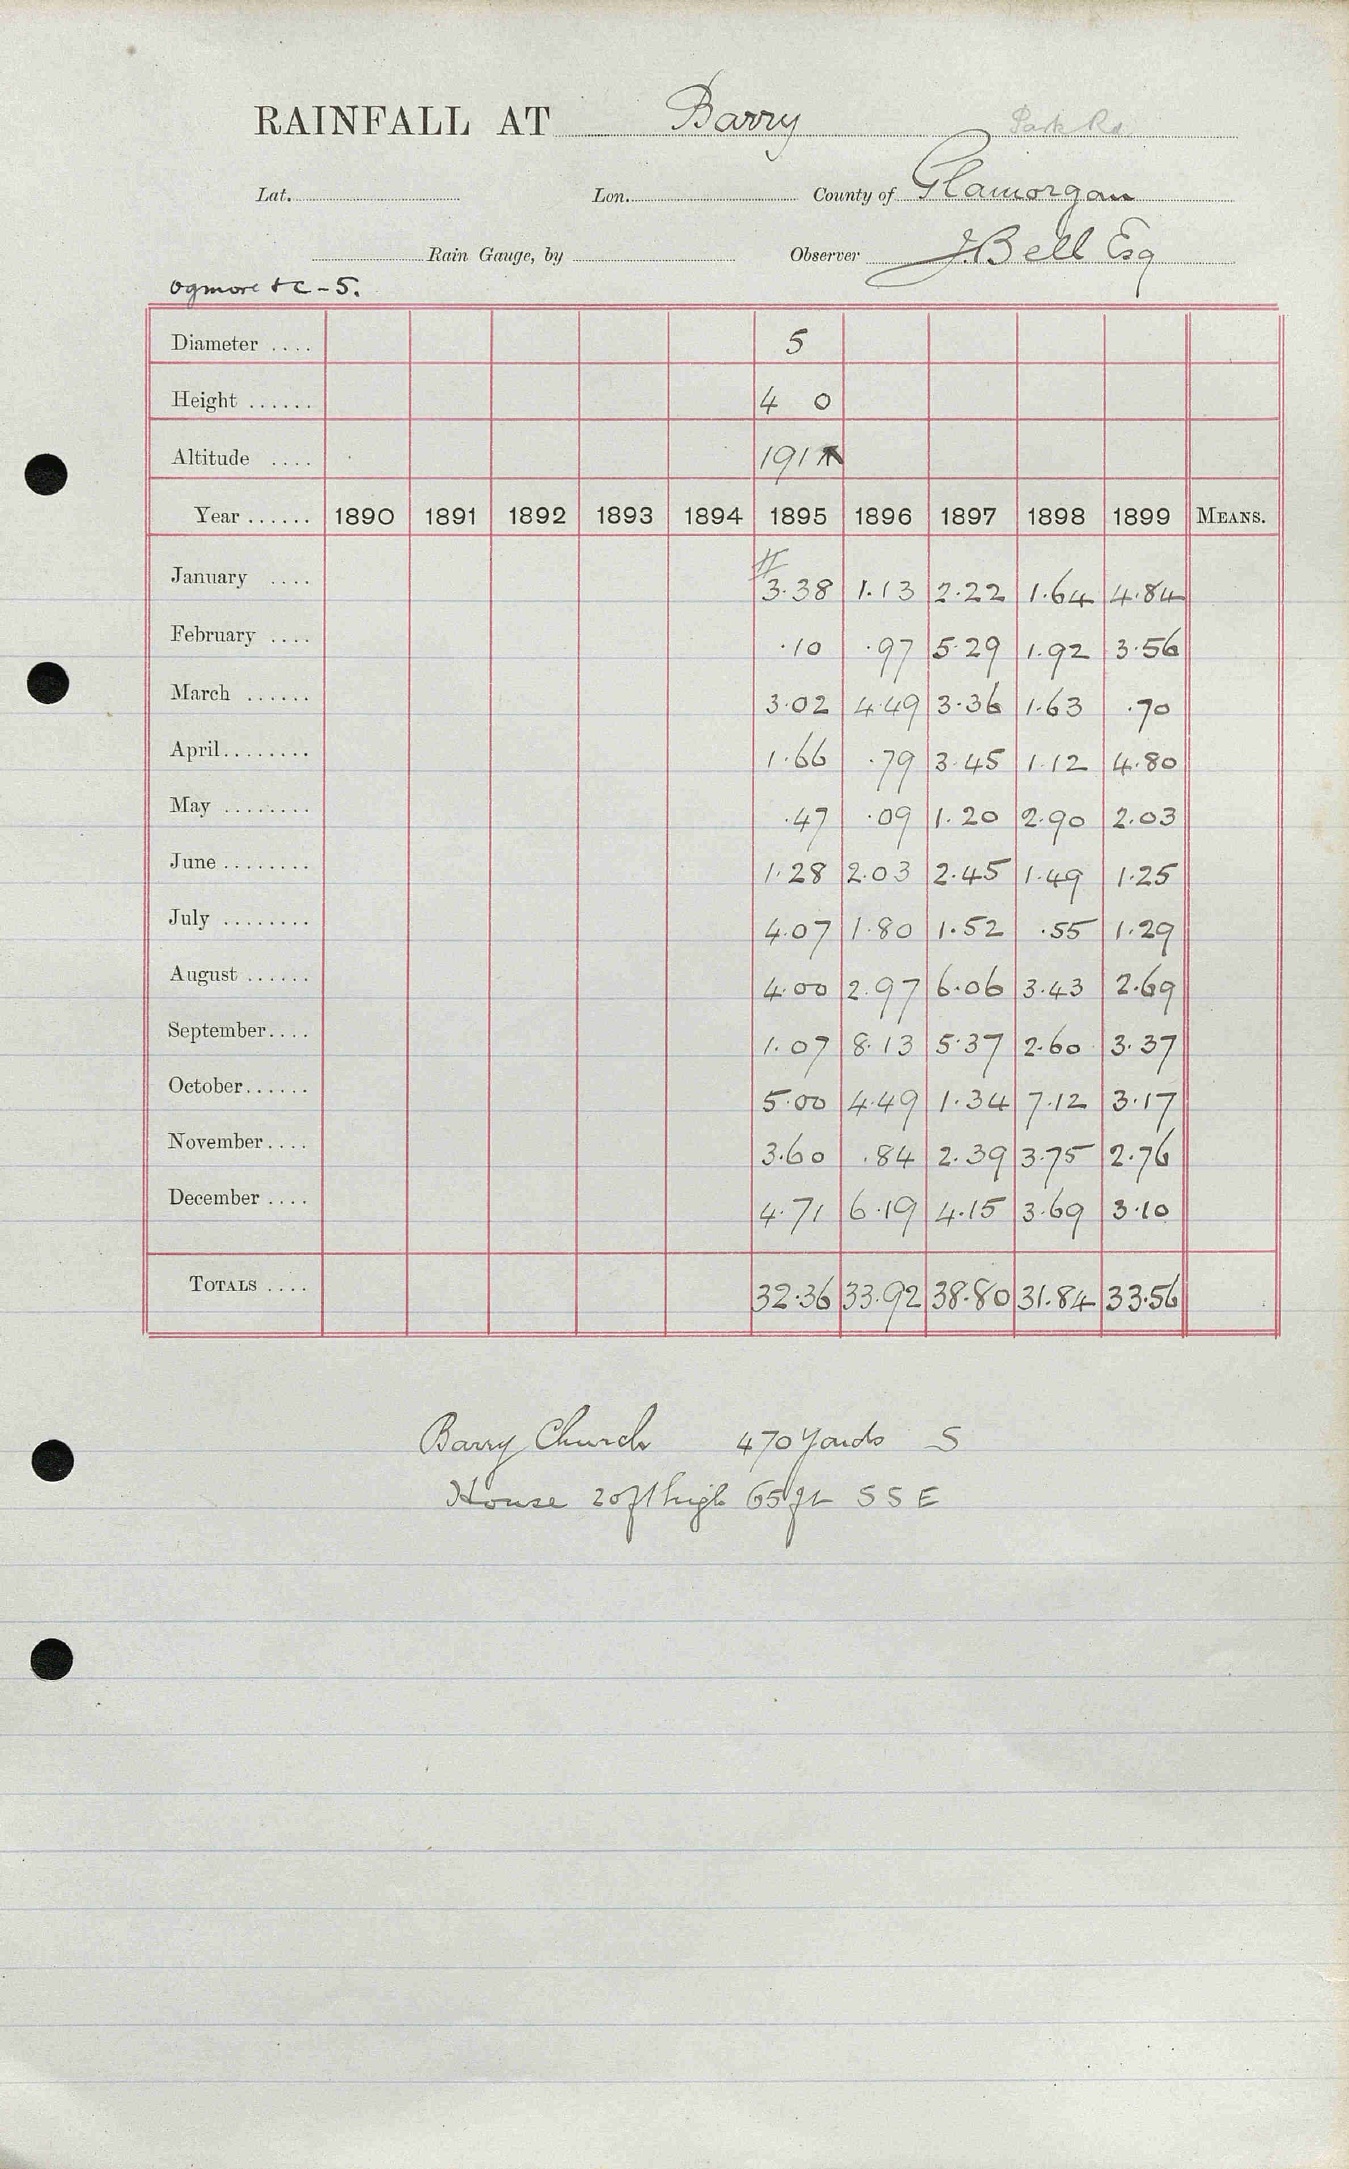 RAINFALL AT Barry Park Rd
Lat. Lon. County of Glamorgan
Rain Gauge, by Observer J. Bell Esq
Ogmore &c - 5.
Diameter .... 5
Height ...... 4 0
Altitude .... 191
Year ...... 1890 1891 1892 1893 1894 1895 1896 1897 1898 1899 MEANS.
January .... # 3.38 1.13 2.22 1.64 4.84
February .... .10 .97 5.29 1.92 3.56
March ...... 3.02 4.49 3.36 1.63 .70
April ........ 1.66 .79 3.45 1.12 4.80
May ........ .47 .09 1.20 2.90 2.03
June ........ 1.28 2.03 2.45 1.49 1.25
July ........ 4.07 1.80 1.52 .55 1.29
August ...... 4.00 2.97 6.06 3.43 2.69
September .... 1.07 8.13 5.37 2.60 3.37
October ...... 5.00 4.49 1.34 7.12 3.17
November .... 3.60 .84 2.39 3.75 2.76
December .... 4.71 6.19 4.15 3.69 3.10
TOTALS .... 32.36 33.92 38.80 31.84 33.56
Barry Church 470 Yards S
House 20ft high 65 ft SSE